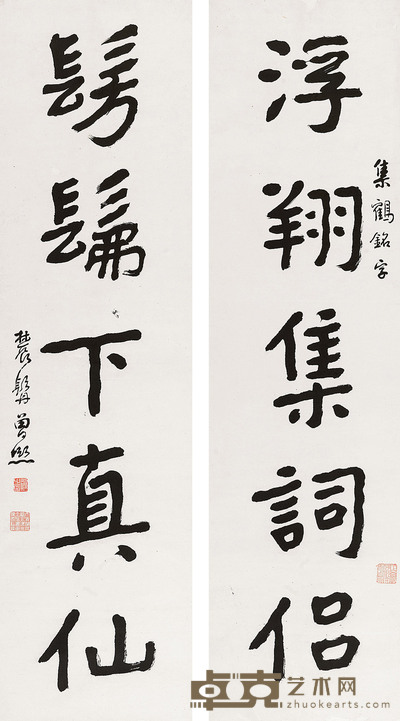 浮翔集詞侶
集鶴銘字
髣髴下真仙
農髯曾熙
卓克艺术网
zhuokearts.com